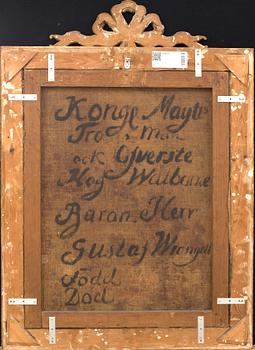 Konge Mayts
Tro, man
och Ofverste
Höy Walborne
Baran, Herr
Gustaf Wrangell
född
Död